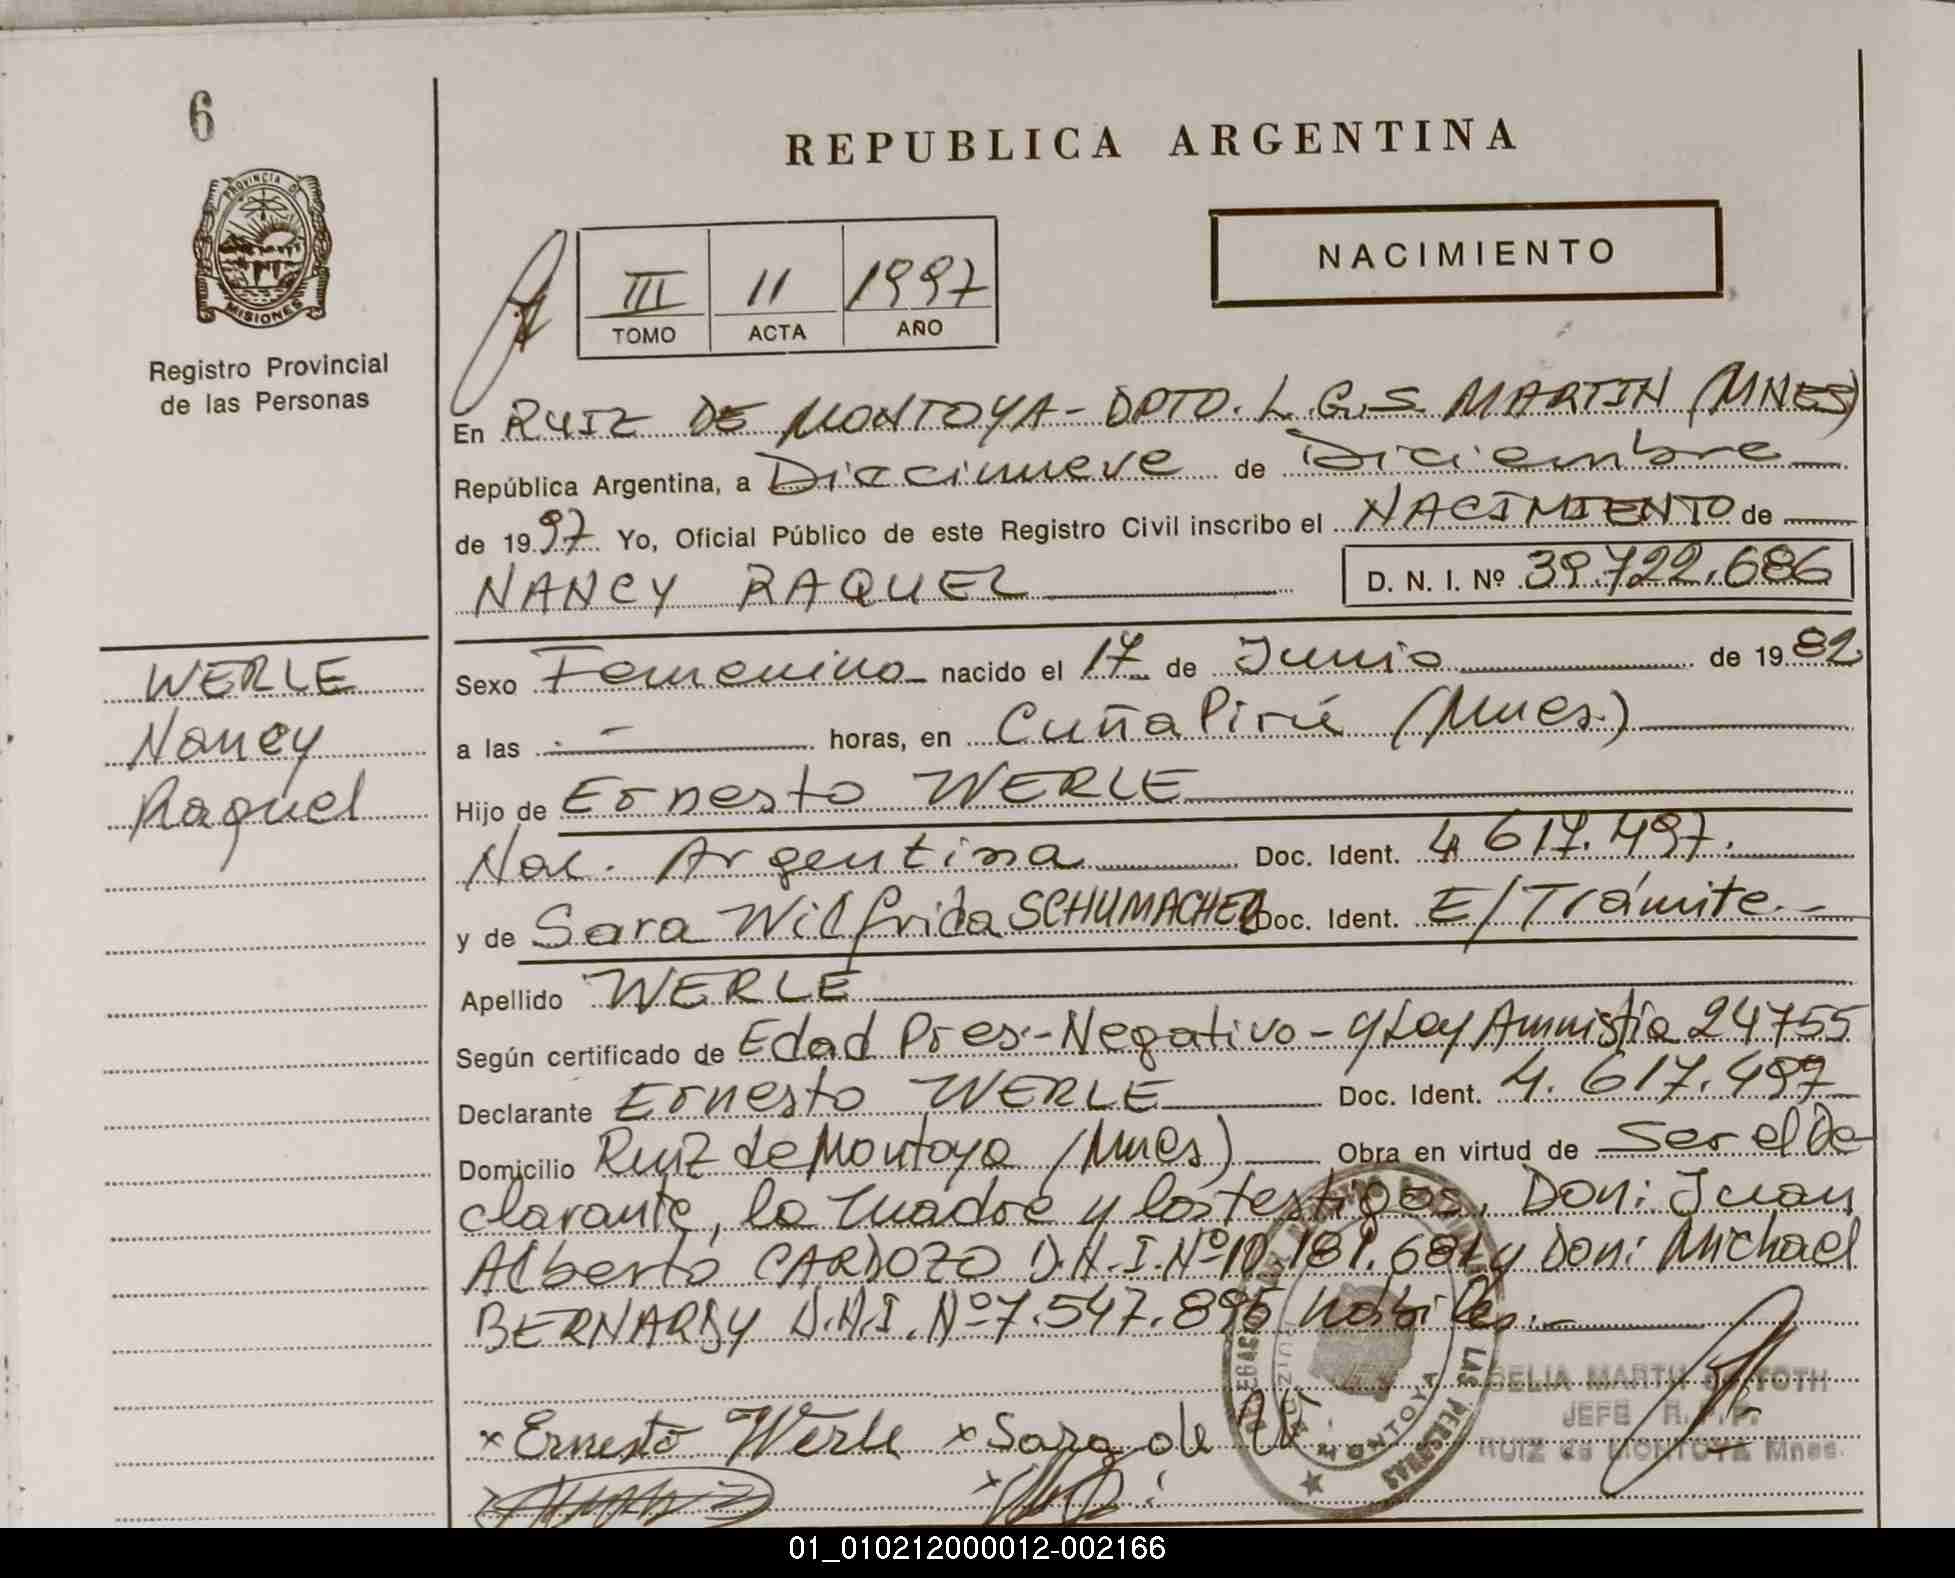 6
REPUBLICA ARGENTINA
PROVINCIA DE
MISIONES
Registro Provincial
de las Personas
NACIMIENTO
III 11 1997
TOMO ACTA AÑO
En RUIZ DE MONTOYA - DPTO. L.G.S. MARTIN (MNES)
República Argentina, a Diecinueve de Diciembre
de 1997 Yo, Oficial Público de este Registro Civil inscribo el NACIMIENTO de
NANCY RAQUEL D. N. I. Nº 39.722.686
WERLE
Nancy
Raquel
Sexo Femenino nacido el 17 de Junio de 1982
a las . - horas, en Cuña Pirú (Mnes.)
Hijo de Ernesto WERLE
Nac. Argentina Doc. Ident. 4 617.497.
y de Sara Wilfrida SCHUMACHER Doc. Ident. E/Trámite.-
Apellido WERLE
Según certificado de Edad Pres.-Negativo - y Ley Amnistia 24755
Declarante Ernesto WERLE Doc. Ident. 4.617.497
Domicilio Ruiz de Montoya (Mnes) Obra en virtud de Ser el De-
clarante, la madre y los testigos, Don: Juan
Alberto CARDOZO D.N.I. Nº 10.181.681 y Don: Michael
BERNARDY D.N.I. Nº 7.547.895 habiles.-
LAS PERSONAS
MONTOYA
x Ernesto Werle x Sara de W.
CELIA MARTH DE TOTH
JEFE R.P.P.
RUIZ de MONTOYA Mnes.
01_010212000012-002166